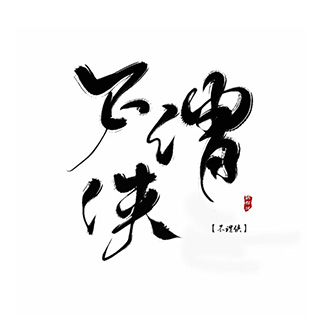 不谓侠
【不谓侠】